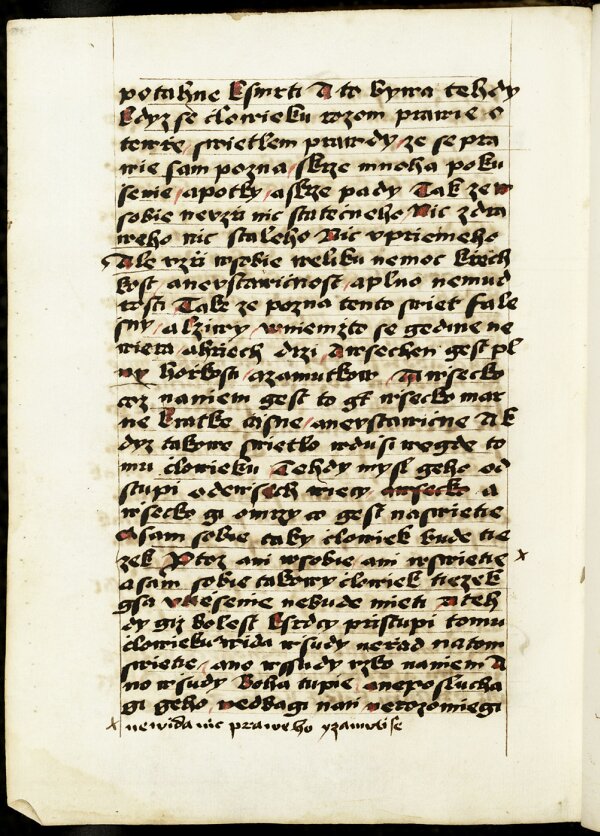 potahne Ksmrti A to bywa tehdy
kdyz se clowieku rozom prawie o
tewrże swietlem prawdy ze se pra
wie sam pozna skrze mnoha poku
ssenie apotky askrze pady Tak ze w
sobie nevzri nic statecneho Nic zdra
weho nic staleho Nic vprziemeho
Ale vzri wsobie weliku nemoc krzeh
kost anevstawicnost aplno nemud
rosti Take ze pozna tento swiet fale
sny alziwy wniemzto se gedine ne
wiera ahrziech drzi Awsechen gest pl
ny horkosti azamutkow Awsecko
coz naniem gest to gt wsecko mar
ne kratke casne anevstawicne A k
dyz takowe swietlo wdusi wegde to
mu clowieku Tehdy mysl geho od
stupi odewsech wiecy wsecko a
wsecko gi omrzy co gest naswietie
Asam sobie taky clowiek bude tie
zek Ptoz ani wsobie ani wswietie x
Asam sobie takowy clowiek tiezek
gsa vtiesenie nebude mieti A teh
dy giz bolest Ksrdcy przistupi tomu
clowieku wida wsudy nerzad natom
swietie ano wssudy rzko naniem A
no wsudy Boha tupie aneposlucha
gi geho nedbagi nan nerozomiegi
x newida nic praweho